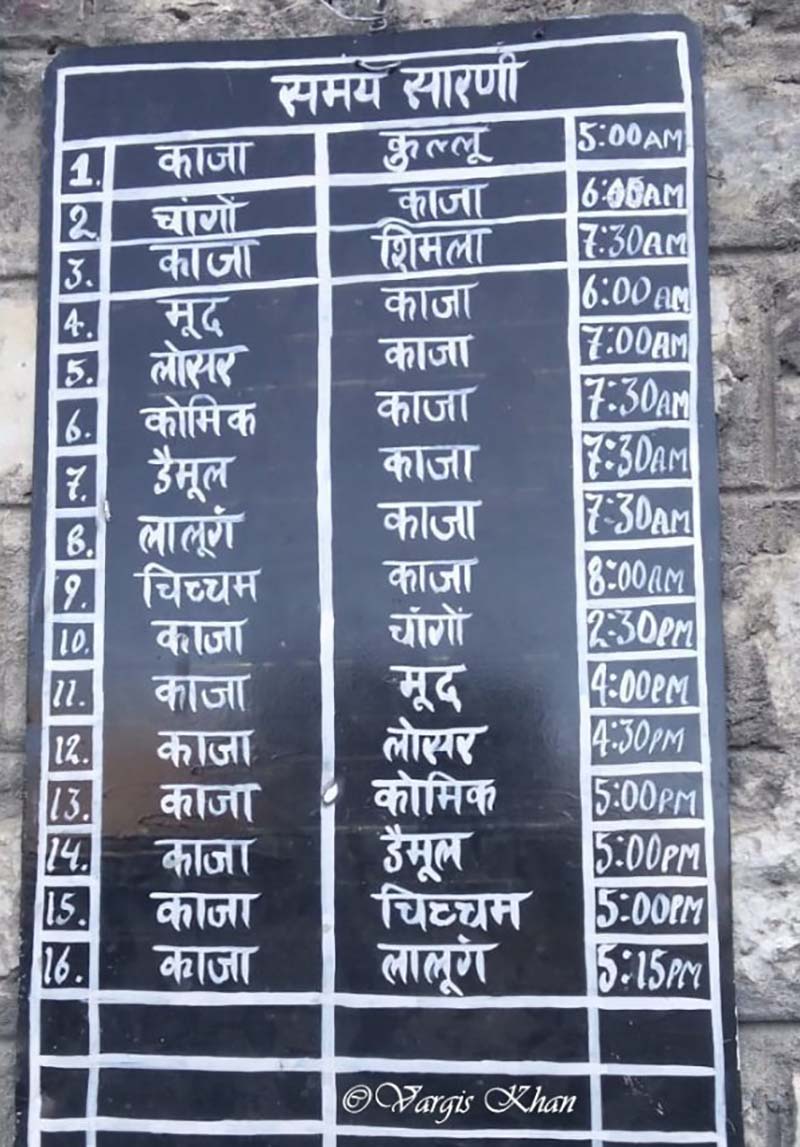 समय सारणी
1. काजा कुल्लू 5:00AM
2. चांगों काजा 6:05AM
3. काजा शिमला 7:30AM
4. मूद काजा 6:00AM
5. लोसर काजा 7:00AM
6. कोमिक काजा 7:30AM
7. डैमूल काजा 7:30AM
8. लालूगं काजा 7:30AM
9. चिच्चम काजा 8:00AM
10. काजा चांगों 2:30PM
11. काजा मूद 4:00PM
12. काजा लोसर 4:30PM
13. काजा कोमिक 5:00PM
14. काजा डैमूल 5:00PM
15. काजा चिच्चम 5:00PM
16. काजा लालूगं 5:15PM
©Vargis Khan